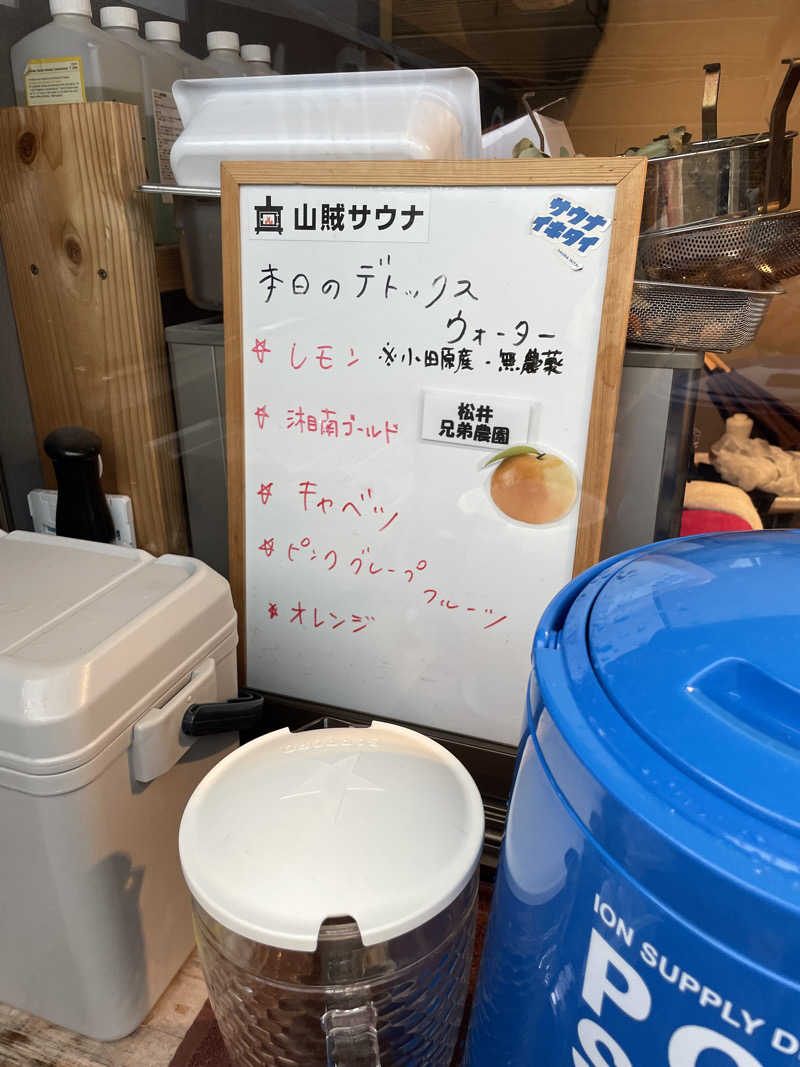 山賊サウナ
サウナ
イキタイ
本日のデトックス
ウォーター
☆ レモン ※小田原産・無農薬
☆ 湘南ゴールド
松井
兄弟農園
☆ キャベツ
☆ ピンクグレープ
フルーツ
☆ オレンジ
ION SUPPLY D
PO
S